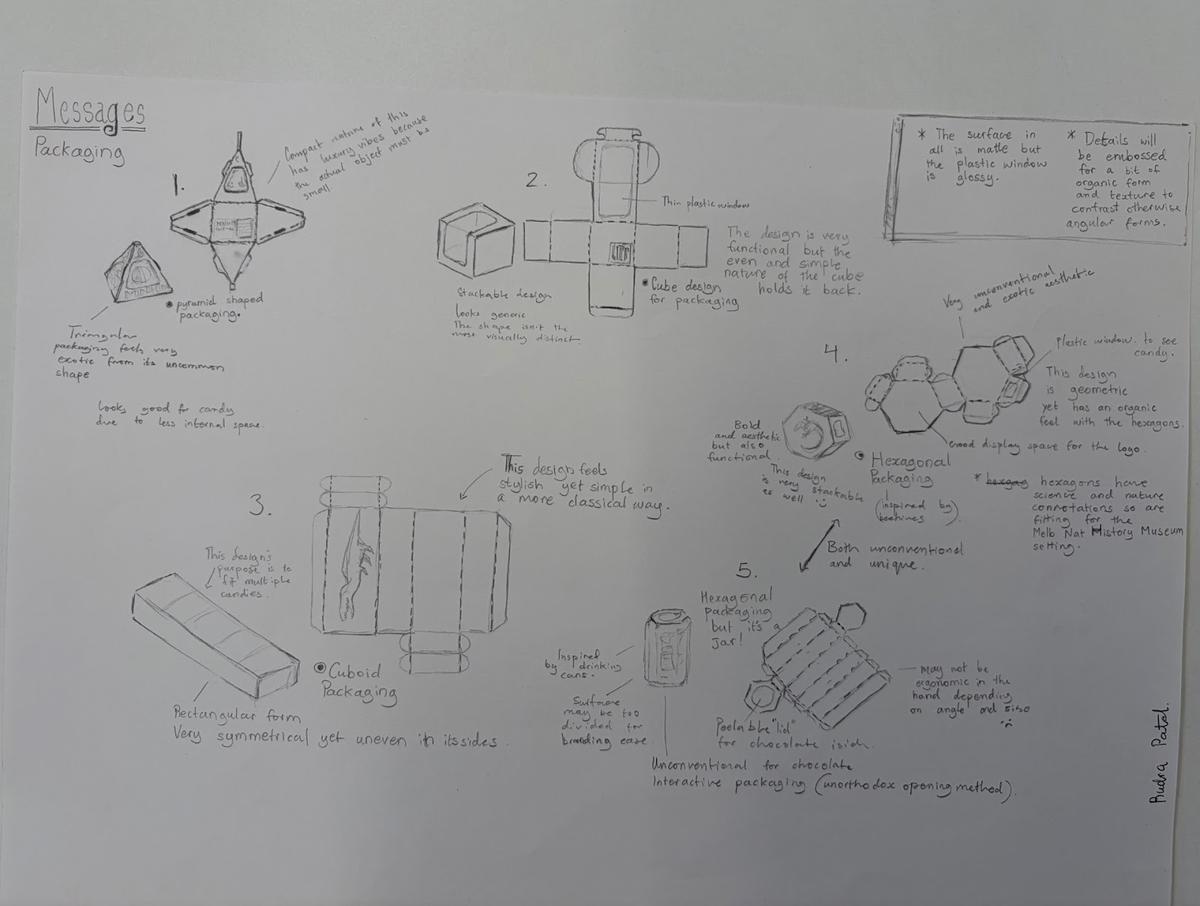 Messages
Packaging
1.
Compact nature of this
has luxury vibes because
the actual object must be
small.
pyramid shaped
packaging.
Triangular
packaging feels very
exotic from its uncommon
shape
Looks good for candy
due to less internal space.
2.
Thin plastic window
The design is very
functional but the
even and simple
nature of the cube
holds it back.
Cube design
for packaging
Stackable design
looks generic
The shape isn't the
most visually distinct
* The surface in
all is matte but
the plastic window
is glossy.
* Details will
be embossed
for a bit of
organic form
and texture to
contrast otherwise
angular forms.
3.
This design feels
stylish yet simple in
a more classical way.
This design's
purpose is to
fit multiple
candies.
Cuboid
Packaging
Rectangular form
Very symmetrical yet uneven in its sides.
4.
Very unconventional
and exotic aesthetic
Plastic window to see
candy.
This design
is geometric
yet has an organic
feel with the hexagons.
Good display space for the logo.
Bold
and aesthetic
but also
functional.
This design
is very stackable
as well
Hexagonal
Packaging
(inspired by
beehives)
* hexagons have
science and nature
connotations so are
fitting for the
Melb Nat History Museum
setting.
Both unconventional
and unique.
5.
Hexagonal
packaging
but it's a
jar!
Inspired
by drinking
cans.
Surface
may be too
divided for
branding ease.
Peelable "lid"
for chocolate
may not be
ergonomic in the
hand depending
on angle and size
Unconventional for chocolate
Interactive packaging (unorthodox opening method).
Rudra Patel.